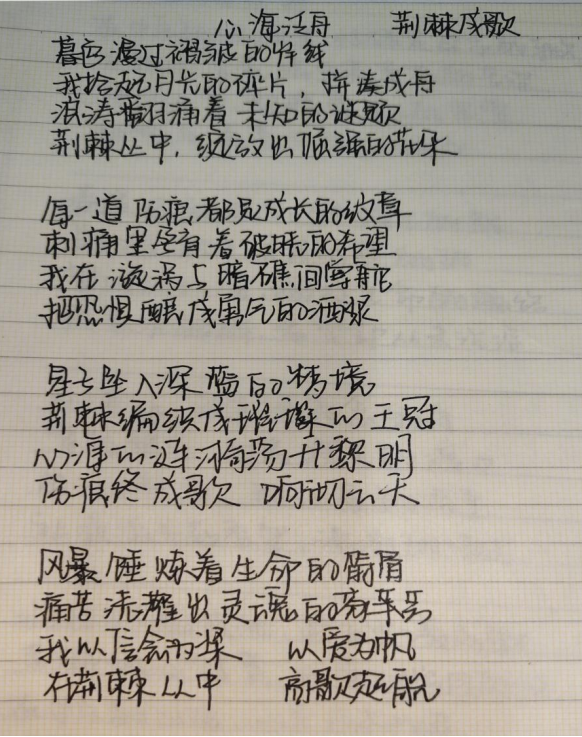 心海泛舟 荆棘成歌
暮色漫过褶皱的岸线
我拾起月光的碎片，拼凑成舟
浪涛翻涌着未知的谜题
荆棘丛中，绽放出倔强的花朵
每一道伤痕都是成长的纹章
刺痛里孕育着破晓的希望
我在漩涡与暗礁间掌舵
把恐惧酿成勇气的酒酿
星子坠入深蓝的梦境
荆棘编织成璀璨的王冠
心海的涟漪荡开黎明
伤痕终成歌 响彻云天
风暴锤炼着生命的脊骨
痛苦浇灌出灵魂的
我以信念为桨 以爱为帆
在荆棘丛中 高歌起航